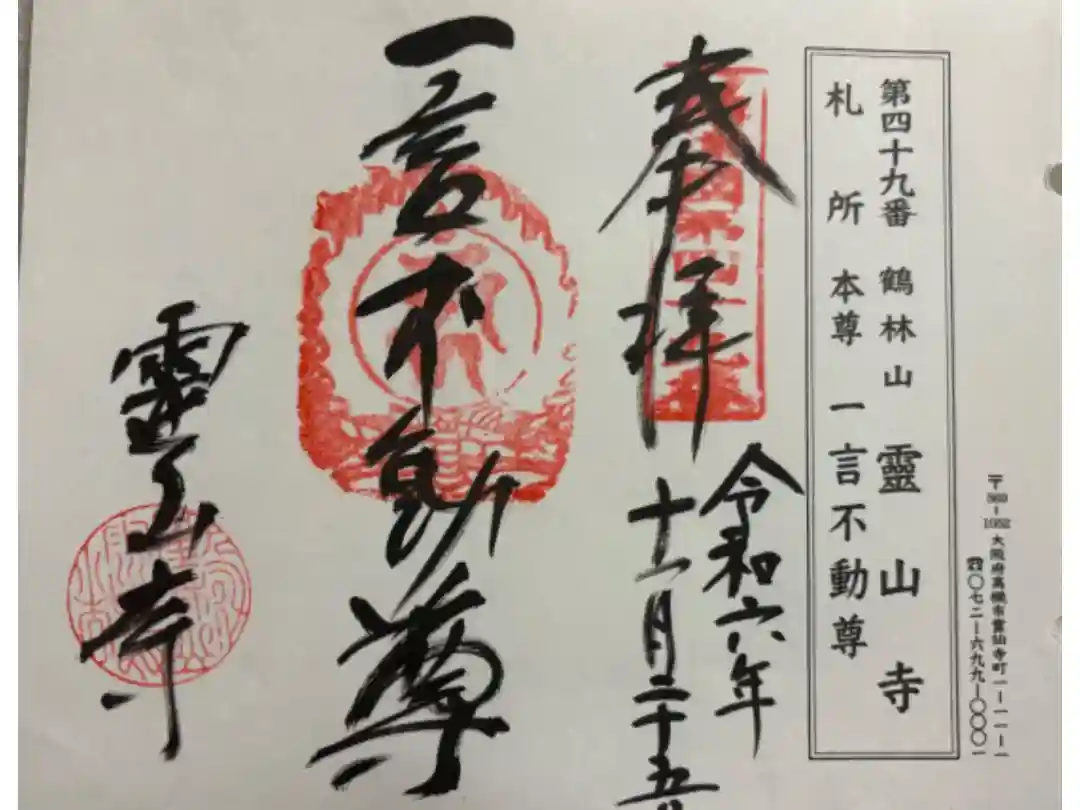 〒569-1052 大阪府高槻市霊仙寺町一ー一一ー一
☎〇七二ー六九九ー〇〇〇一
第四十九番 鶴林山 靈山寺
札所本尊 一言不動尊
奉拝
令和六年
十一月二十五日
一言不動尊
靈山寺